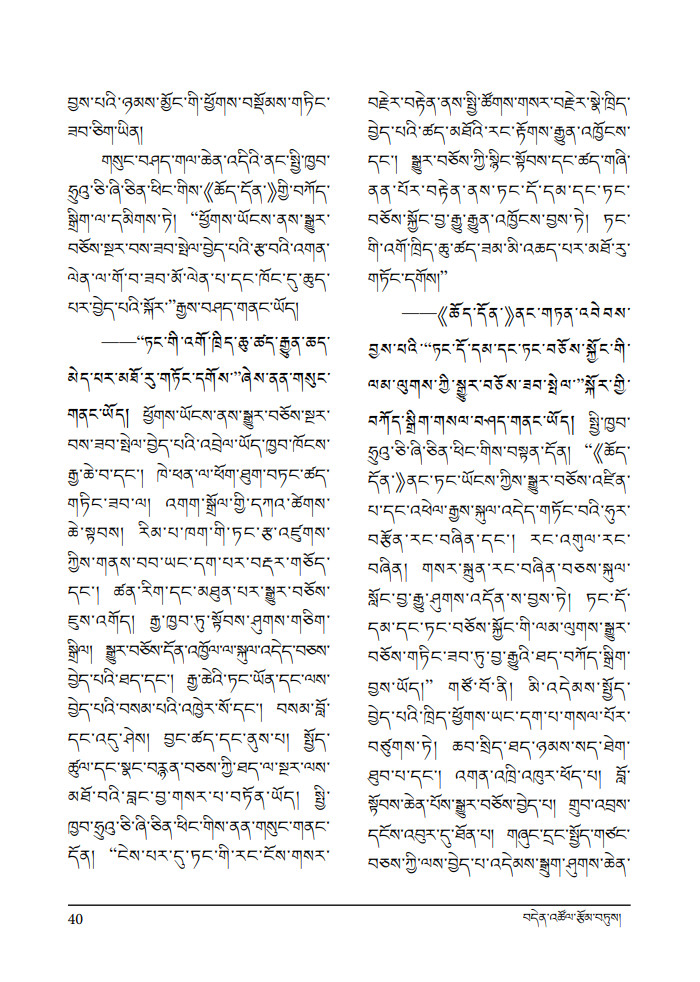 བྱས་པའི་ཉམས་མྱོང་གི་ཕྱོགས་བསྡོམས་གཏིང་
ཟབ་ཅིག་ཡིན།
གསུང་བཤད་གལ་ཆེན་འདིའི་ནང་སྤྱི་ཁྱབ་
ཧྲུའུ་ཅི་ཞི་ཅིན་ཕིང་གིས་《ཆོད་དོན་》གྱི་བཀོད་
སྒྲིག་ལ་དམིགས་ཏེ། “ཕྱོགས་ཡོངས་ནས་སྒྱུར་
བཅོས་སྔར་བས་ཟབ་སྤེལ་བྱེད་པའི་རྩ་བའི་འགན་
ལེན་ལ་གོ་བ་ཟབ་མོ་ལེན་པ་དང་ཁོང་དུ་ཆུད་
པར་བྱེད་པའི་སྐོར་”རྒྱས་བཤད་གནང་ཡོད།
——“ཏང་གི་འགོ་ཁྲིད་ཆུ་ཚད་རྒྱུན་ཆད་
མེད་པར་མཐོ་རུ་གཏོང་དགོས་”ཞེས་ནན་གསུང་
གནང་ཡོད། ཕྱོགས་ཡོངས་ནས་སྒྱུར་བཅོས་སྔར་
བས་ཟབ་སྤེལ་བྱེད་པའི་འབྲེལ་ཡོད་ཁྱབ་ཁོངས་
རྒྱ་ཆེ་བ་དང་། ཁེ་ཕན་ལ་ཕོག་ཐུག་བཏང་ཚད་
གཏིང་ཟབ་ལ། འགག་སྒྲོལ་གྱི་དཀའ་ཚེགས་
ཆེ་སྟབས། རིམ་པ་ཁག་གི་ཏང་རྩ་འཛུགས་
ཀྱིས་གནས་བབ་ཡང་དག་པར་བརྡར་གཅོད་
དང་། ཚན་རིག་དང་མཐུན་པར་སྒྱུར་བཅོས་
ཇུས་འགོད། རྒྱ་ཁྱབ་ཏུ་སྟོབས་ཤུགས་གཅིག་
སྒྲིལ། སྒྱུར་བཅོས་དོན་འཁྱོལ་ལ་སྐུལ་འདེད་བཅས་
བྱེད་པའི་ཐད་དང་། རྒྱ་ཆེའི་ཏང་ཡོན་དང་ལས་
བྱེད་པའི་བསམ་པའི་འཁྱེར་སོ་དང་། བསམ་བློ་
དང་འདུ་ཤེས། བྱང་ཚད་དང་ནུས་པ། སྤྱོད་
ཚུལ་དང་སྣང་བརྙན་བཅས་ཀྱི་ཐད་ལ་སྔར་ལས་
མཐོ་བའི་བླང་བྱ་གསར་པ་བཏོན་ཡོད། སྤྱི་
ཁྱབ་ཧྲུའུ་ཅི་ཞི་ཅིན་ཕིང་གིས་ནན་གསུང་གནང་
དོན། “ངེས་པར་དུ་ཏང་གི་རང་ངོས་གསར་
བརྗེར་བརྟེན་ནས་སྤྱི་ཚོགས་གསར་བརྗེར་སྣེ་ཁྲིད་
བྱེད་པའི་ཚད་མཐོའི་རང་རྟོགས་རྒྱུན་འཁྱོངས་
དང་། སྒྱུར་བཅོས་ཀྱི་སྙིང་སྟོབས་དང་ཚད་གཞི་
ནན་པོར་བརྟེན་ནས་ཏང་དོ་དམ་དང་ཏང་
བཅོས་སྐྱོང་བྱ་རྒྱུ་རྒྱུན་འཁྱོངས་བྱས་ཏེ། ཏང་
གི་འགོ་ཁྲིད་ཆུ་ཚད་ཟམ་མི་འཆད་པར་མཐོ་རུ་
གཏོང་དགོས།”
——《ཆོད་དོན་》ནང་གཏན་འབེབས་
བྱས་པའི་“ཏང་དོ་དམ་དང་ཏང་བཅོས་སྐྱོང་གི་
ལམ་ལུགས་ཀྱི་སྒྱུར་བཅོས་ཟབ་སྤེལ་”སྐོར་གྱི་
བཀོད་སྒྲིག་གསལ་བཤད་གནང་ཡོད། སྤྱི་ཁྱབ་
ཧྲུའུ་ཅི་ཞི་ཅིན་ཕིང་གིས་བསྟན་དོན། “《ཆོད་
དོན་》ནང་ཏང་ཡོངས་ཀྱིས་སྒྱུར་བཅོས་འཛིན་
པ་དང་འཕེལ་རྒྱས་སྐུལ་འདེད་གཏོང་བའི་ཧུར་
བརྩོན་རང་བཞིན་དང་། རང་འགུལ་རང་
བཞིན། གསར་སྐྲུན་རང་བཞིན་བཅས་སྐུལ་
སློང་བྱ་རྒྱུ་ཤུགས་འདོན་ས་བྱས་ཏེ། ཏང་དོ་
དམ་དང་ཏང་བཅོས་སྐྱོང་གི་ལམ་ལུགས་སྒྱུར་
བཅོས་གཏིང་ཟབ་ཏུ་བྱ་རྒྱུའི་ཐད་བཀོད་སྒྲིག་
བྱས་ཡོད།” གཙོ་བོ་ནི། མི་འདེམས་སྤྱོད་
བྱེད་པའི་ཁྲིད་ཕྱོགས་ཡང་དག་པ་གསལ་པོར་
བཙུགས་ཏེ། ཆབ་སྲིད་ཐད་ཉམས་སད་ཐེག་
ཐུབ་པ་དང་། འགན་འཁྲི་འཁུར་ཕོད་པ། བློ་
སྟོབས་ཆེན་པོས་སྒྱུར་བཅོས་བྱེད་པ། གྲུབ་འབྲས་
དངོས་འབུར་དུ་ཐོན་པ། གཞུང་དྲང་སྤྱོད་གཙང་
བཅས་ཀྱི་ལས་བྱེད་པ་འདེམས་སྒྲུག་ཤུགས་ཆེན་
40
བདེན་འཚོལ་རྩོམ་བཏུས།